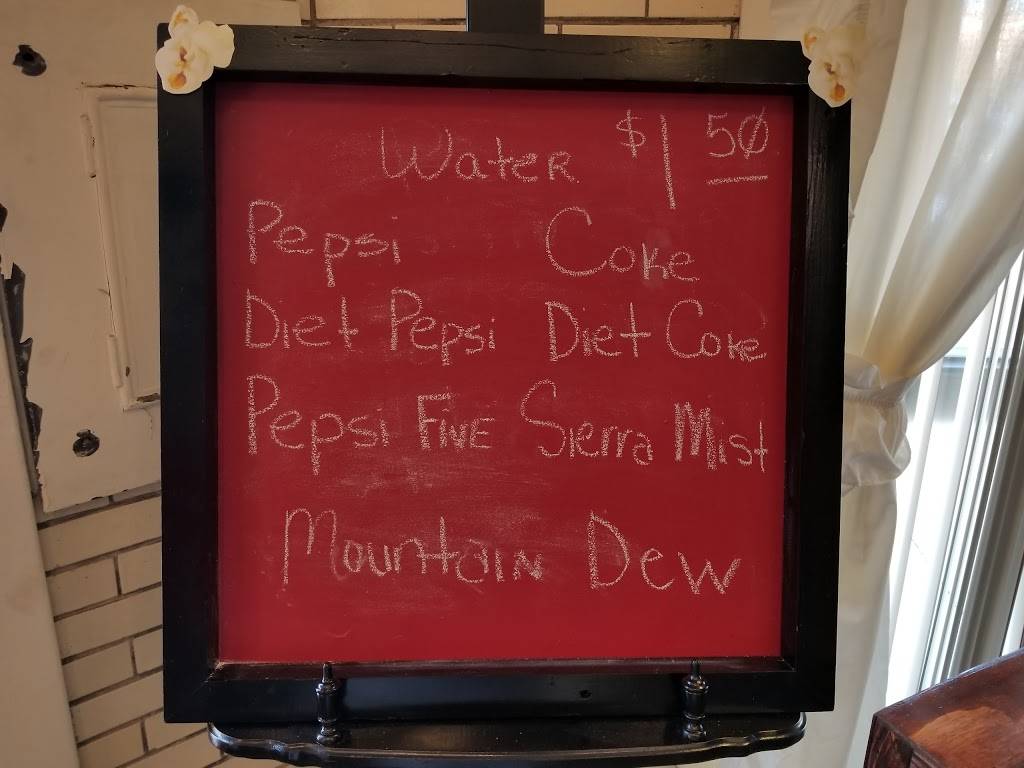 Water $1 50
Pepsi Coke
Diet Pepsi Diet Coke
Pepsi Five Sierra Mist
Mountain Dew